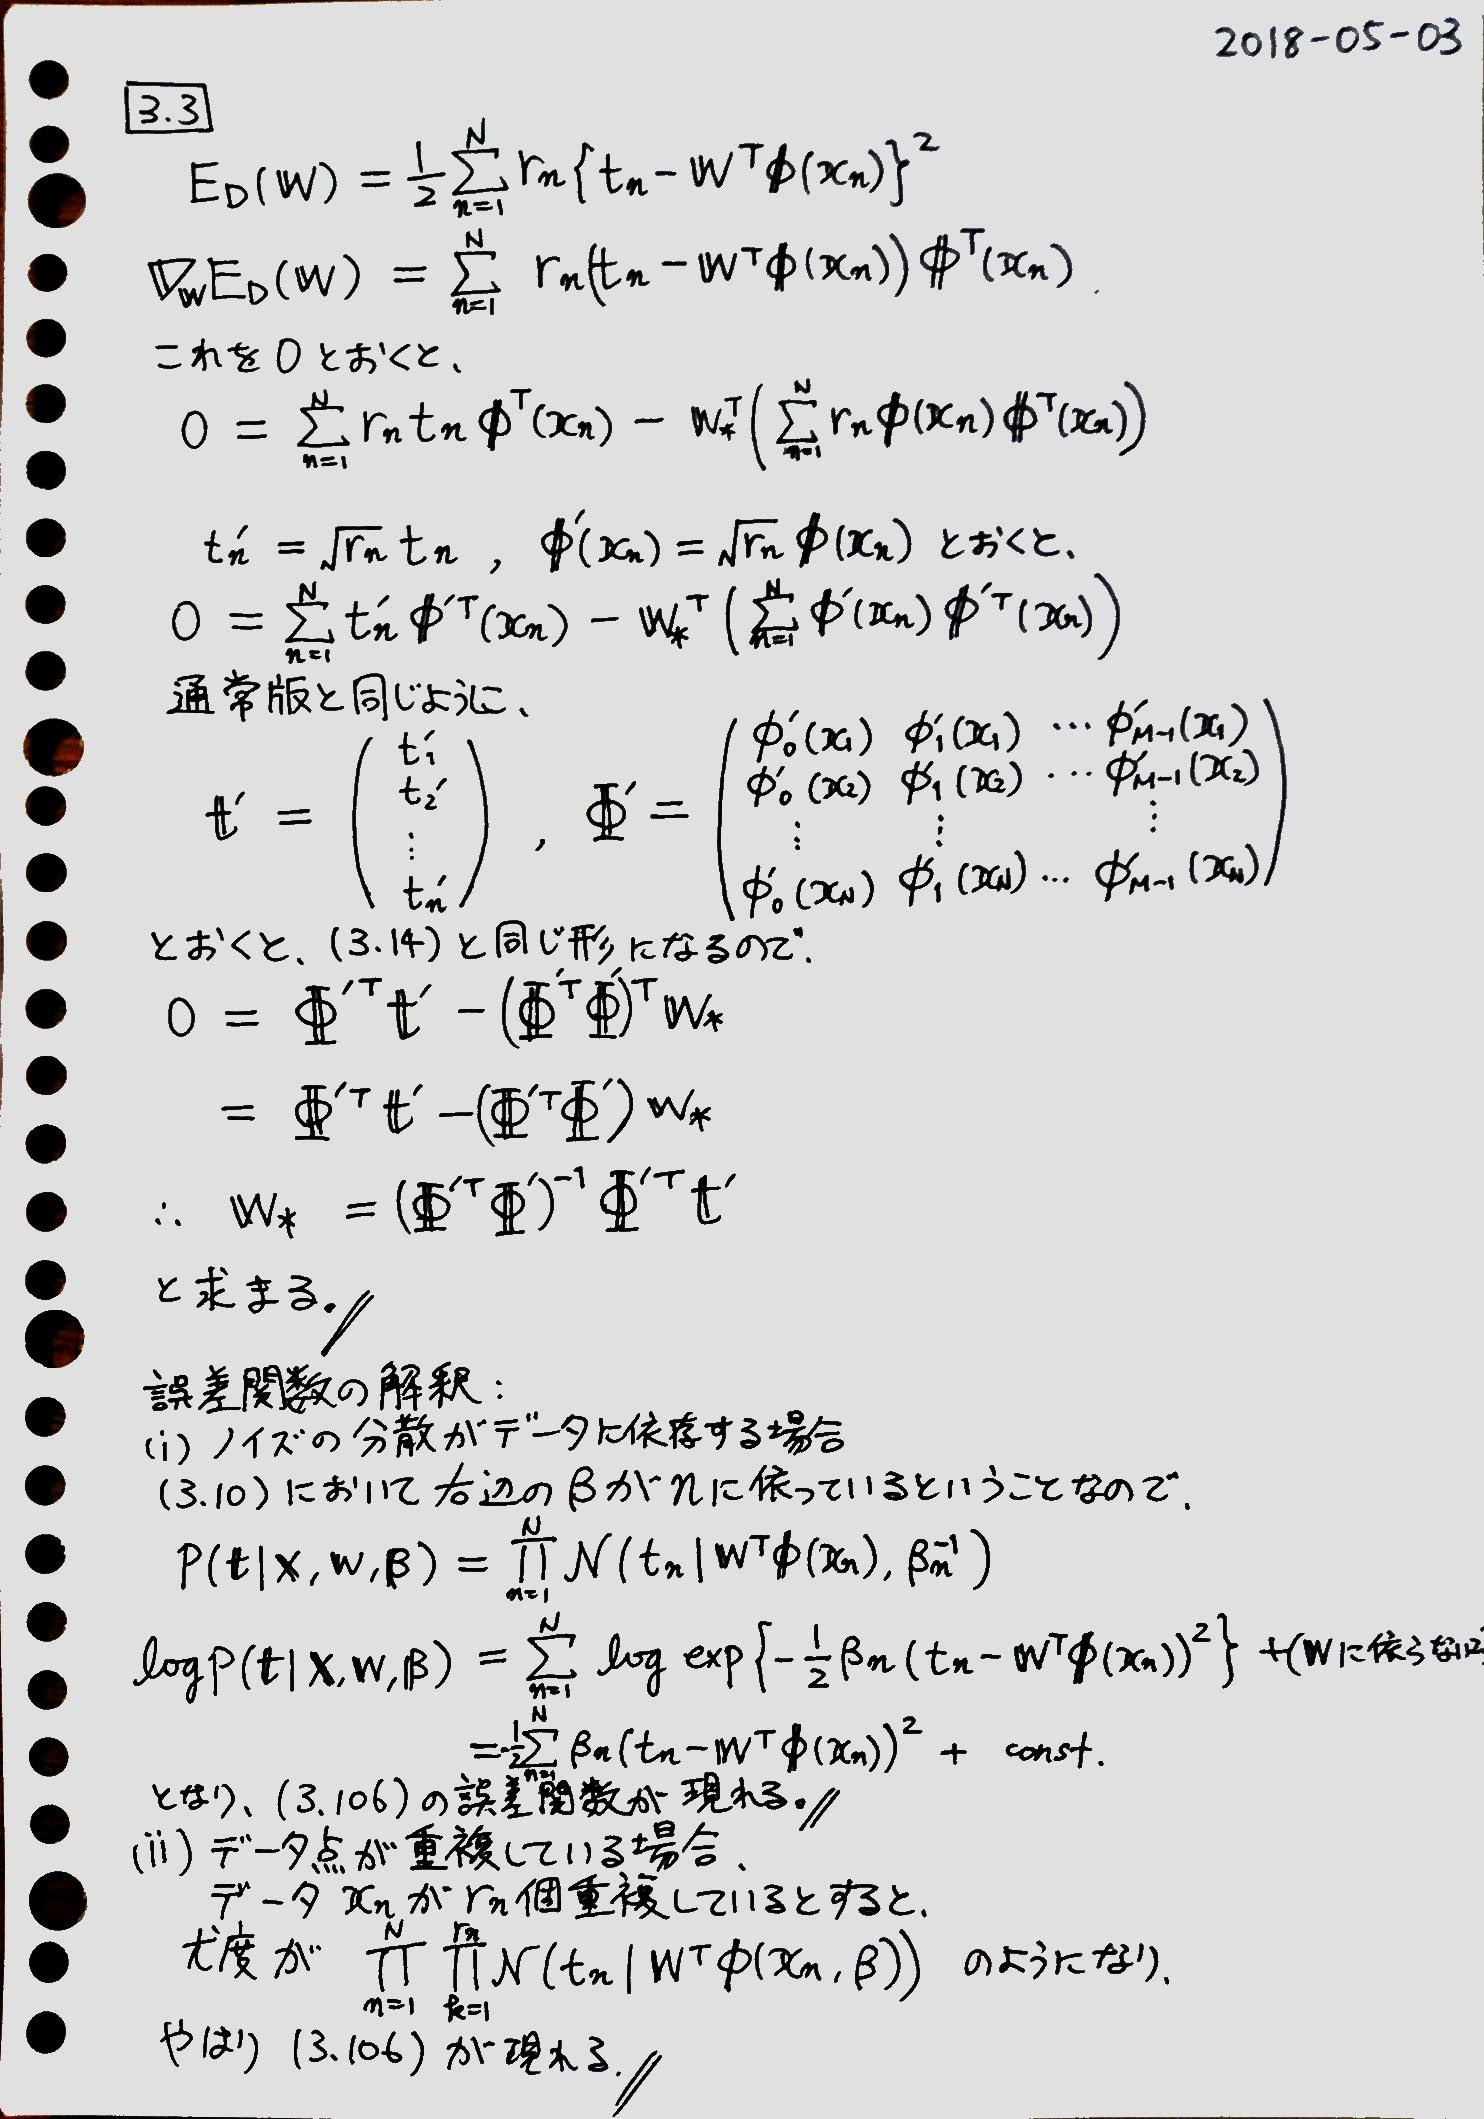 2018-05-03
3.3
E_D(w) = 1/2 Σ_{n=1}^{N} r_n {t_n - w^T φ(x_n)}^2
∇_w E_D(w) = Σ_{n=1}^{N} r_n (t_n - w^T φ(x_n)) φ^T(x_n).
これを0とおくと、
0 = Σ_{n=1}^{N} r_n t_n φ^T(x_n) - w_*^T (Σ_{n=1}^{N} r_n φ(x_n) φ^T(x_n))
t'_n = √r_n t_n , φ'(x_n) = √r_n φ(x_n) とおくと、
0 = Σ_{n=1}^{N} t'_n φ'^T(x_n) - w_*^T (Σ_{n=1}^{N} φ'(x_n) φ'^T(x_n))
通常版と同じように、
t' = (t'_1 t'_2 ⋮ t'_n) , Φ' = (φ'_0(x_1) φ'_1(x_1) … φ'_{M-1}(x_1)
φ'_0(x_2) φ'_1(x_2) … φ'_{M-1}(x_2)
⋮ ⋮ ⋮
φ'_0(x_N) φ'_1(x_N) … φ'_{M-1}(x_N))
とおくと、(3.14)と同じ形になるので、
0 = Φ'^T t' - (Φ'^T Φ')^T w_*
= Φ'^T t' - (Φ'^T Φ') w_*
∴ w_* = (Φ'^T Φ')^{-1} Φ'^T t'
と求まる。//
誤差関数の解釈:
(i) ノイズの分散がデータに依存する場合
(3.10)において右辺のβがnに依っているということなので、
P(t|x, w, β) = Π_{n=1}^{N} N(t_n | w^T φ(x_n), β_n^{-1})
log P(t|x, w, β) = Σ_{n=1}^{N} log exp{-1/2 β_n (t_n - w^T φ(x_n))^2} + (wに依らない
= -1/2 Σ_{n=1}^{N} β_n (t_n - w^T φ(x_n))^2 + const.
となり、(3.106)の誤差関数が現れる。//
(ii) データ点が重複している場合、
データ x_n が r_n 個重複しているとすると、
尤度が Π_{n=1}^{N} Π_{k=1}^{r_n} N(t_n | w^T φ(x_n, β)) のようになり、
やはり (3.106) が現れる.//